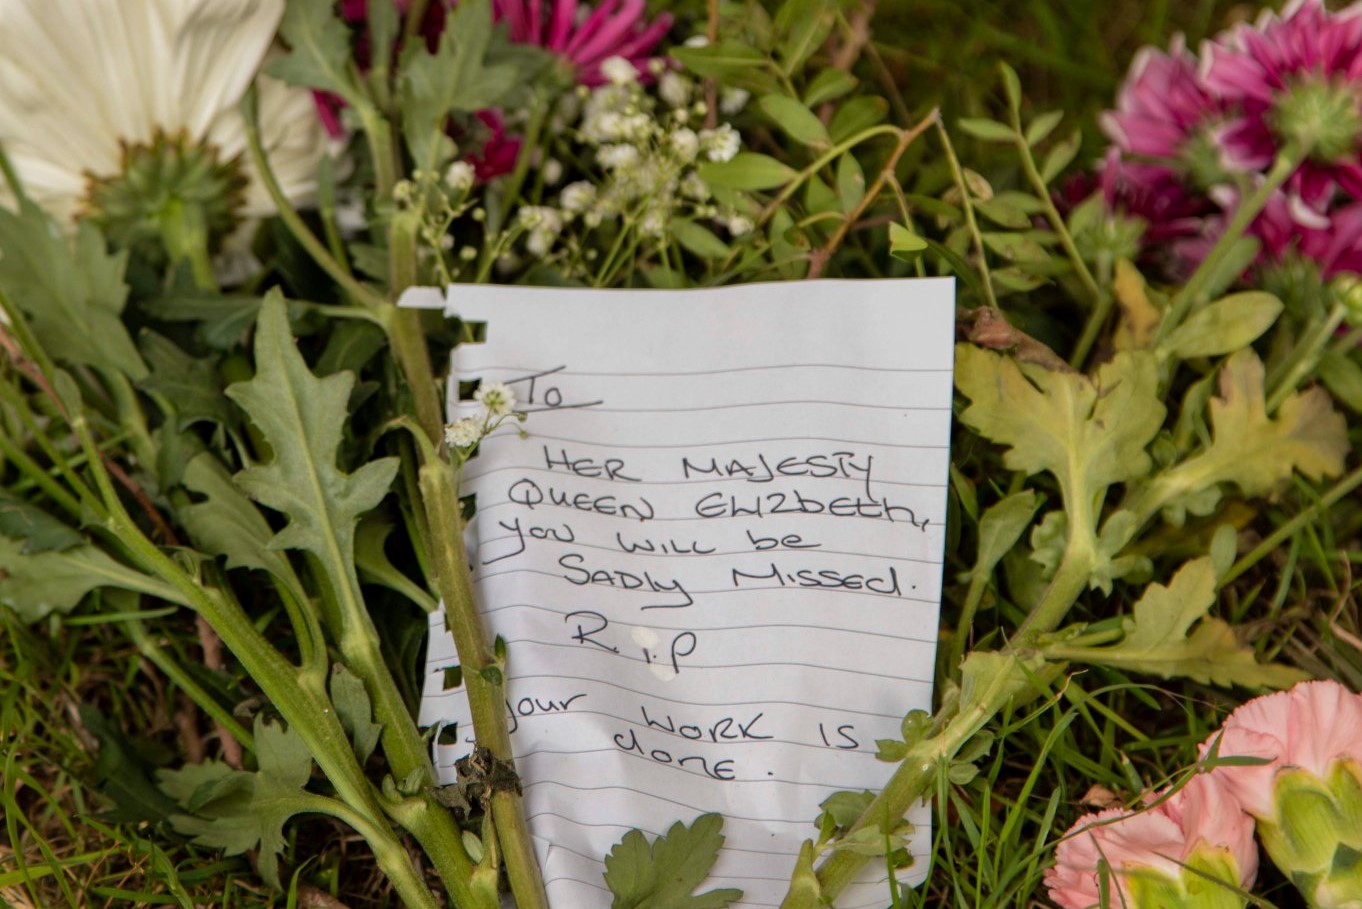 To
HER MAJESTY
QUEEN ELIZbETH,
you WILL be
SADLY MISSED.
R.i.p
your WORK IS
done.